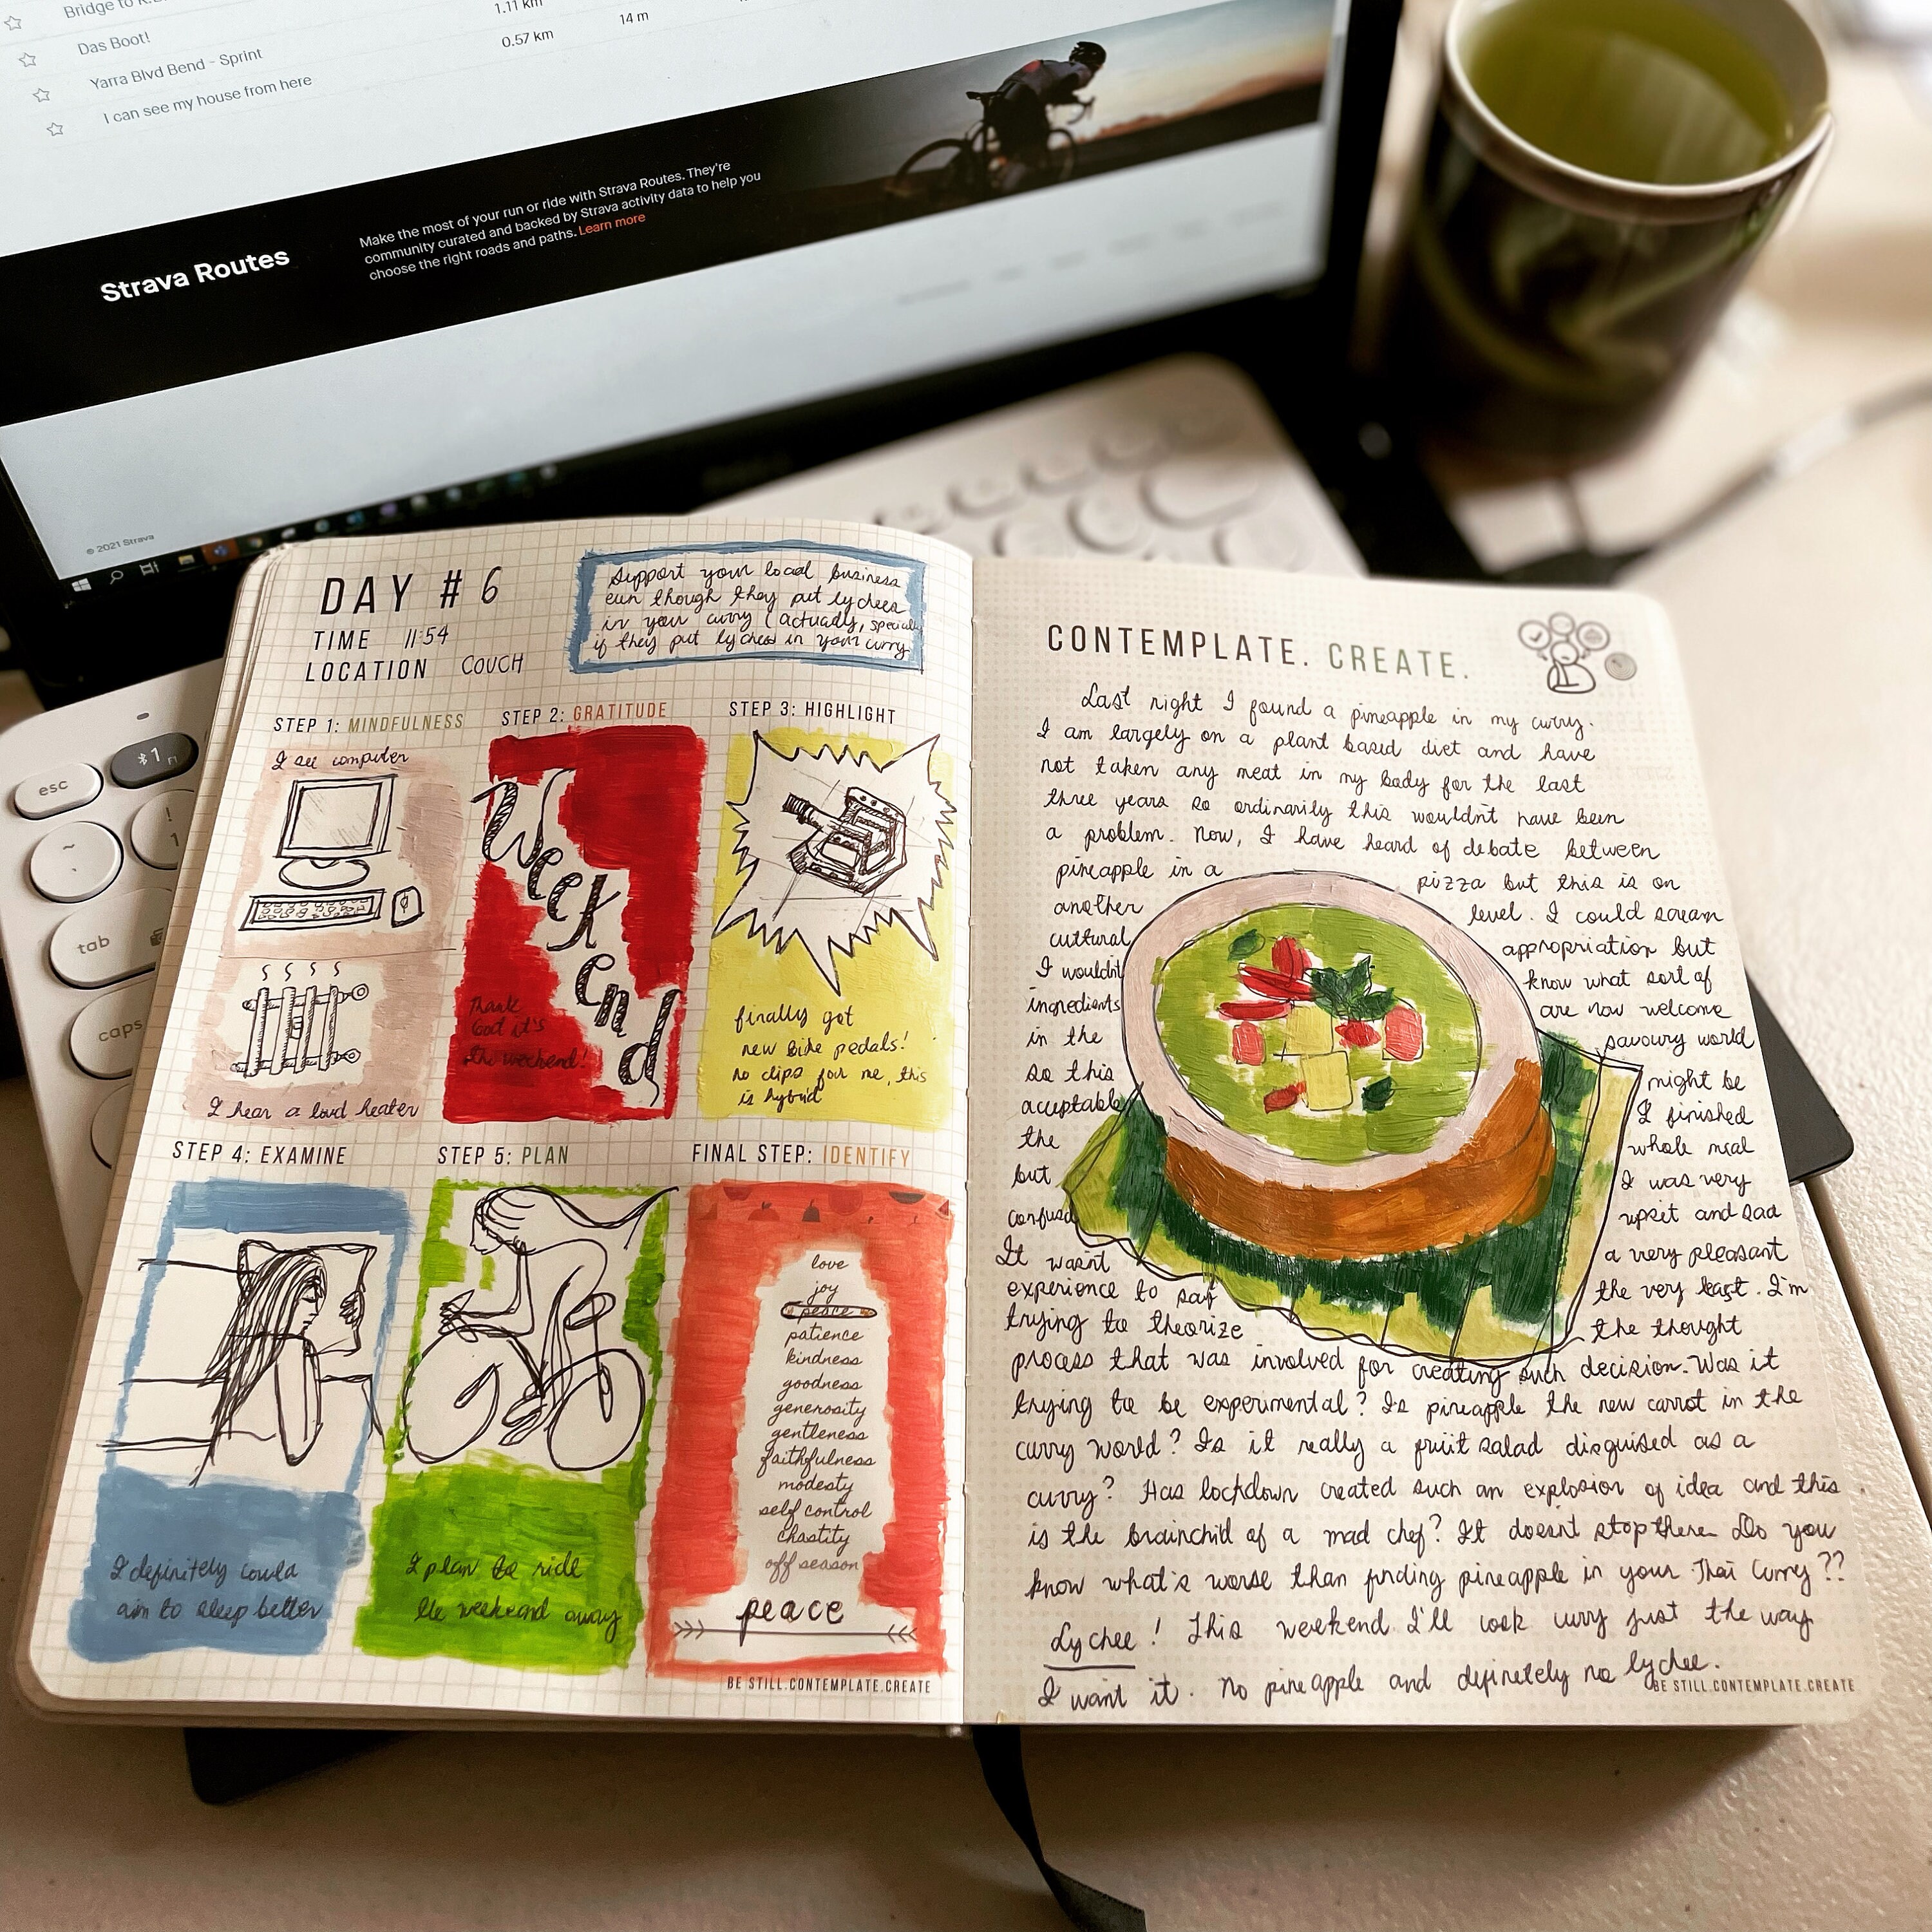 Bridge to
1.11 km
Das Boot!
0.57 km
14 m
Yarra Blvd Bend - Sprint
I can see my house from here
Strava Routes
Make the most of your run or ride with Strava Routes. They're
community curated and backed by Strava activity data to help you
choose the right roads and paths. Learn more
© 2021 Strava
esc
1
F1
~
!
1
tab
caps
DAY # 6
TIME 11:54
LOCATION COUCH
Support your local business
even though they put lychees
in your curry (actually, specially
if they put lychees in your curry
STEP 1: MINDFULNESS
I see computer
I hear a loud heater
STEP 2: GRATITUDE
Weekend
Thank
God it's
the weekend!
STEP 3: HIGHLIGHT
finally got
new bike pedals!
no clips for me, this
is hybrid
STEP 4: EXAMINE
I definitely could
aim to sleep better
STEP 5: PLAN
I plan to ride
the weekend away
FINAL STEP: IDENTIFY
love
joy
peace
patience
kindness
goodness
generosity
gentleness
faithfulness
modesty
self control
chastity
off season
peace
BE STILL.CONTEMPLATE.CREATE
CONTEMPLATE. CREATE.
Last night I found a pineapple in my curry.
I am largely on a plant based diet and have
not taken any meat in my body for the last
three years so ordinarily this wouldn't have been
a problem. Now, I have heard of debate between
pineapple in a pizza but this is on
another level. I could scream
cultural appropriation but
I wouldn't know what sort of
ingredients are now welcome
in the savoury world
so this might be
acceptable I finished
the whole meal
but I was very
confused upset and sad
It wasn't a very pleasant
experience to say the very least. I'm
trying to theorize the thought
process that was involved for creating such decision. Was it
trying to be experimental? Is pineapple the new carrot in the
curry world? Is it really a fruit salad disguised as a
curry? Has lockdown created such an explosion of idea and this
is the brainchild of a mad chef? It doesnt stop there. Do you
know what's worse than finding pineapple in your Thai Curry??
Lychee! This weekend I'll cook curry just the way
I want it. No pineapple and definetely no lychee.
BE STILL.CONTEMPLATE.CREATE